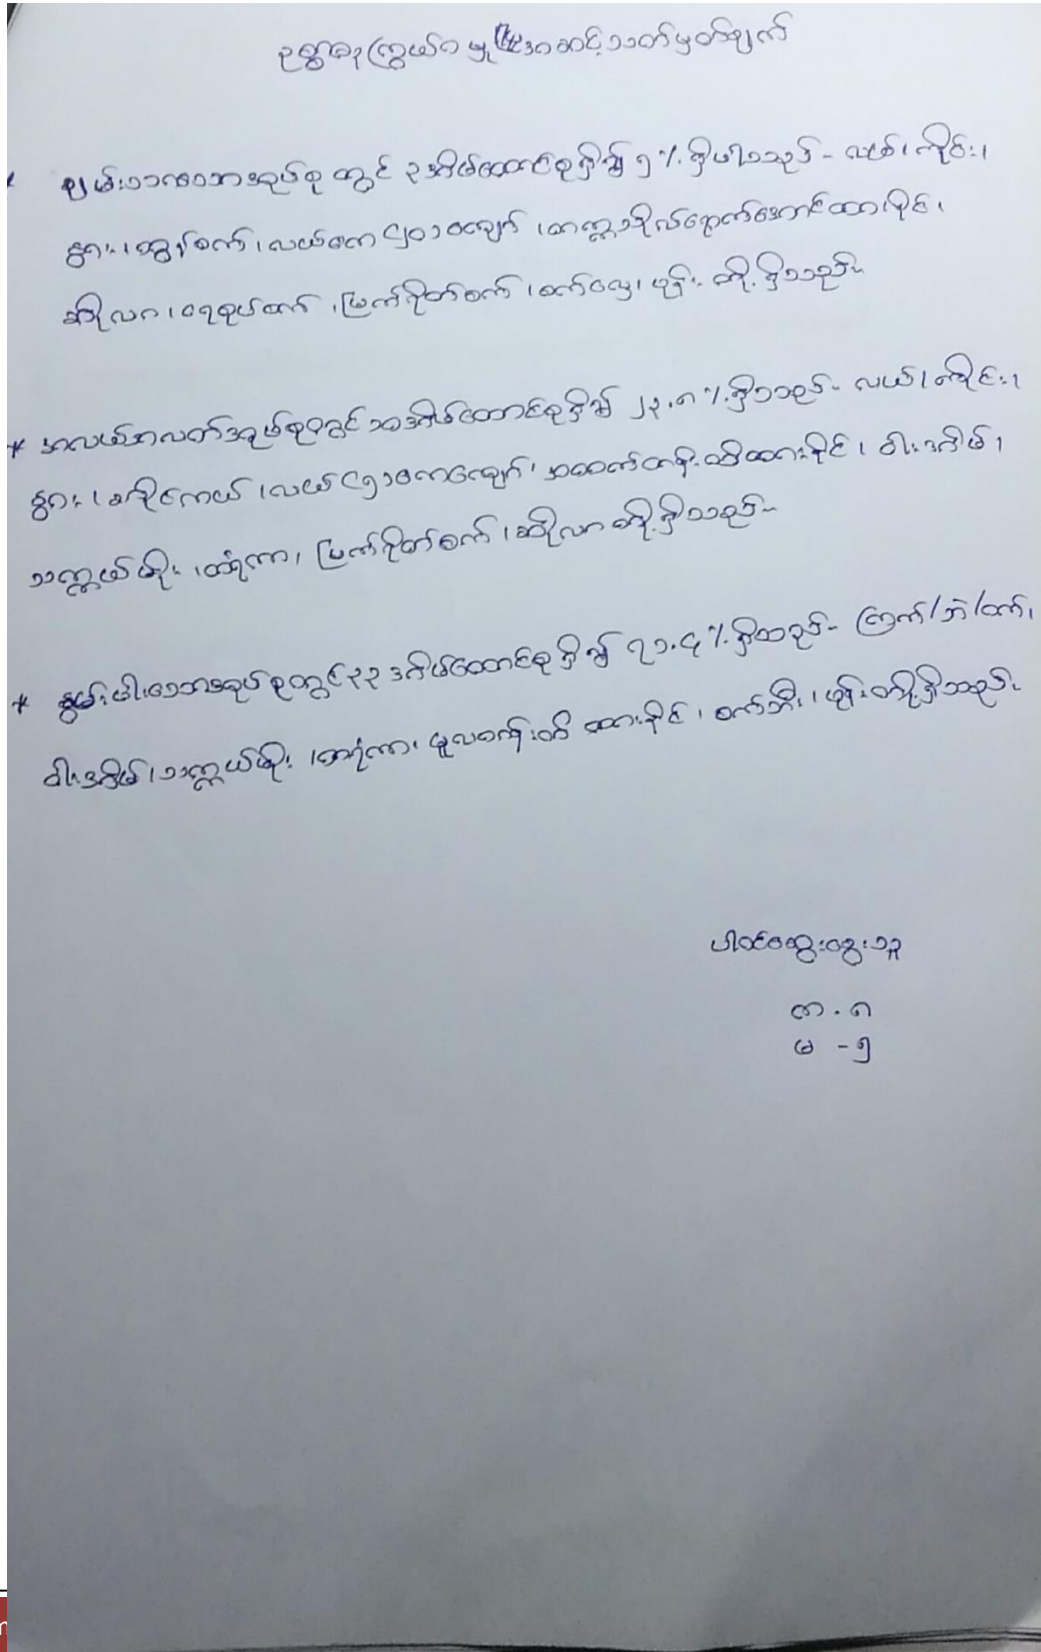 ဥစ္စာဓန ကြွယ်ဝမှု အဆင့်သတ်မှတ်ချက်
ချမ်းသာသောအုပ်စုတွင် ၃အိမ်ထောင်စုရှိ၍ ၅% ရှိပါသည်- လယ်၊ ကိုင်း၊
နွား၊ ထွန်စက်၊ လယ်ဧက ၄၀၁၀ကျော်၊ တက္ကသိုလ်ရောက်အောင်ထားနိုင်၊
ဆိုလာ၊ ရေစုပ်စက်၊ မြက်ရိတ်စက်၊ စက်လှေ၊ ဖုန်း တို့ ရှိသည်။
* အလယ်အလတ်အုပ်စုတွင် ၁၀အိမ်ထောင်စုရှိ၍ ၂၃.၈ % ရှိသည်- လယ်၊ ကိုင်း၊
နွား၊ ဆိုင်ကယ်၊ လယ် ၄၅၁၀ဧကကျော်၊ အထက်တန်းထိထားနိုင်၊ ဝါးအိမ်၊
သက္ကယ်မိုး၊ ထရံကာ၊ မြက်ရိတ်စက်၊ ဆိုလာ တို့ ရှိသည်-
* နွမ်းပါးသောအုပ်စုတွင် ၃၃ အိမ်ထောင်စုရှိ၍ ၇၁.၄ % ရှိသည်- ကြက်/ဘဲ/ဝက်၊
ဝါးအိမ်၊ သက္ကယ်မိုး၊ ထရံကာ၊ မူလတန်းထိ ထားနိုင်၊ စက်ဘီး၊ ဖုန်းတို့ရှိသည်။
ပါဝင်ဆွေးနွေးသူ
ကာ - ၈
မ - ၅